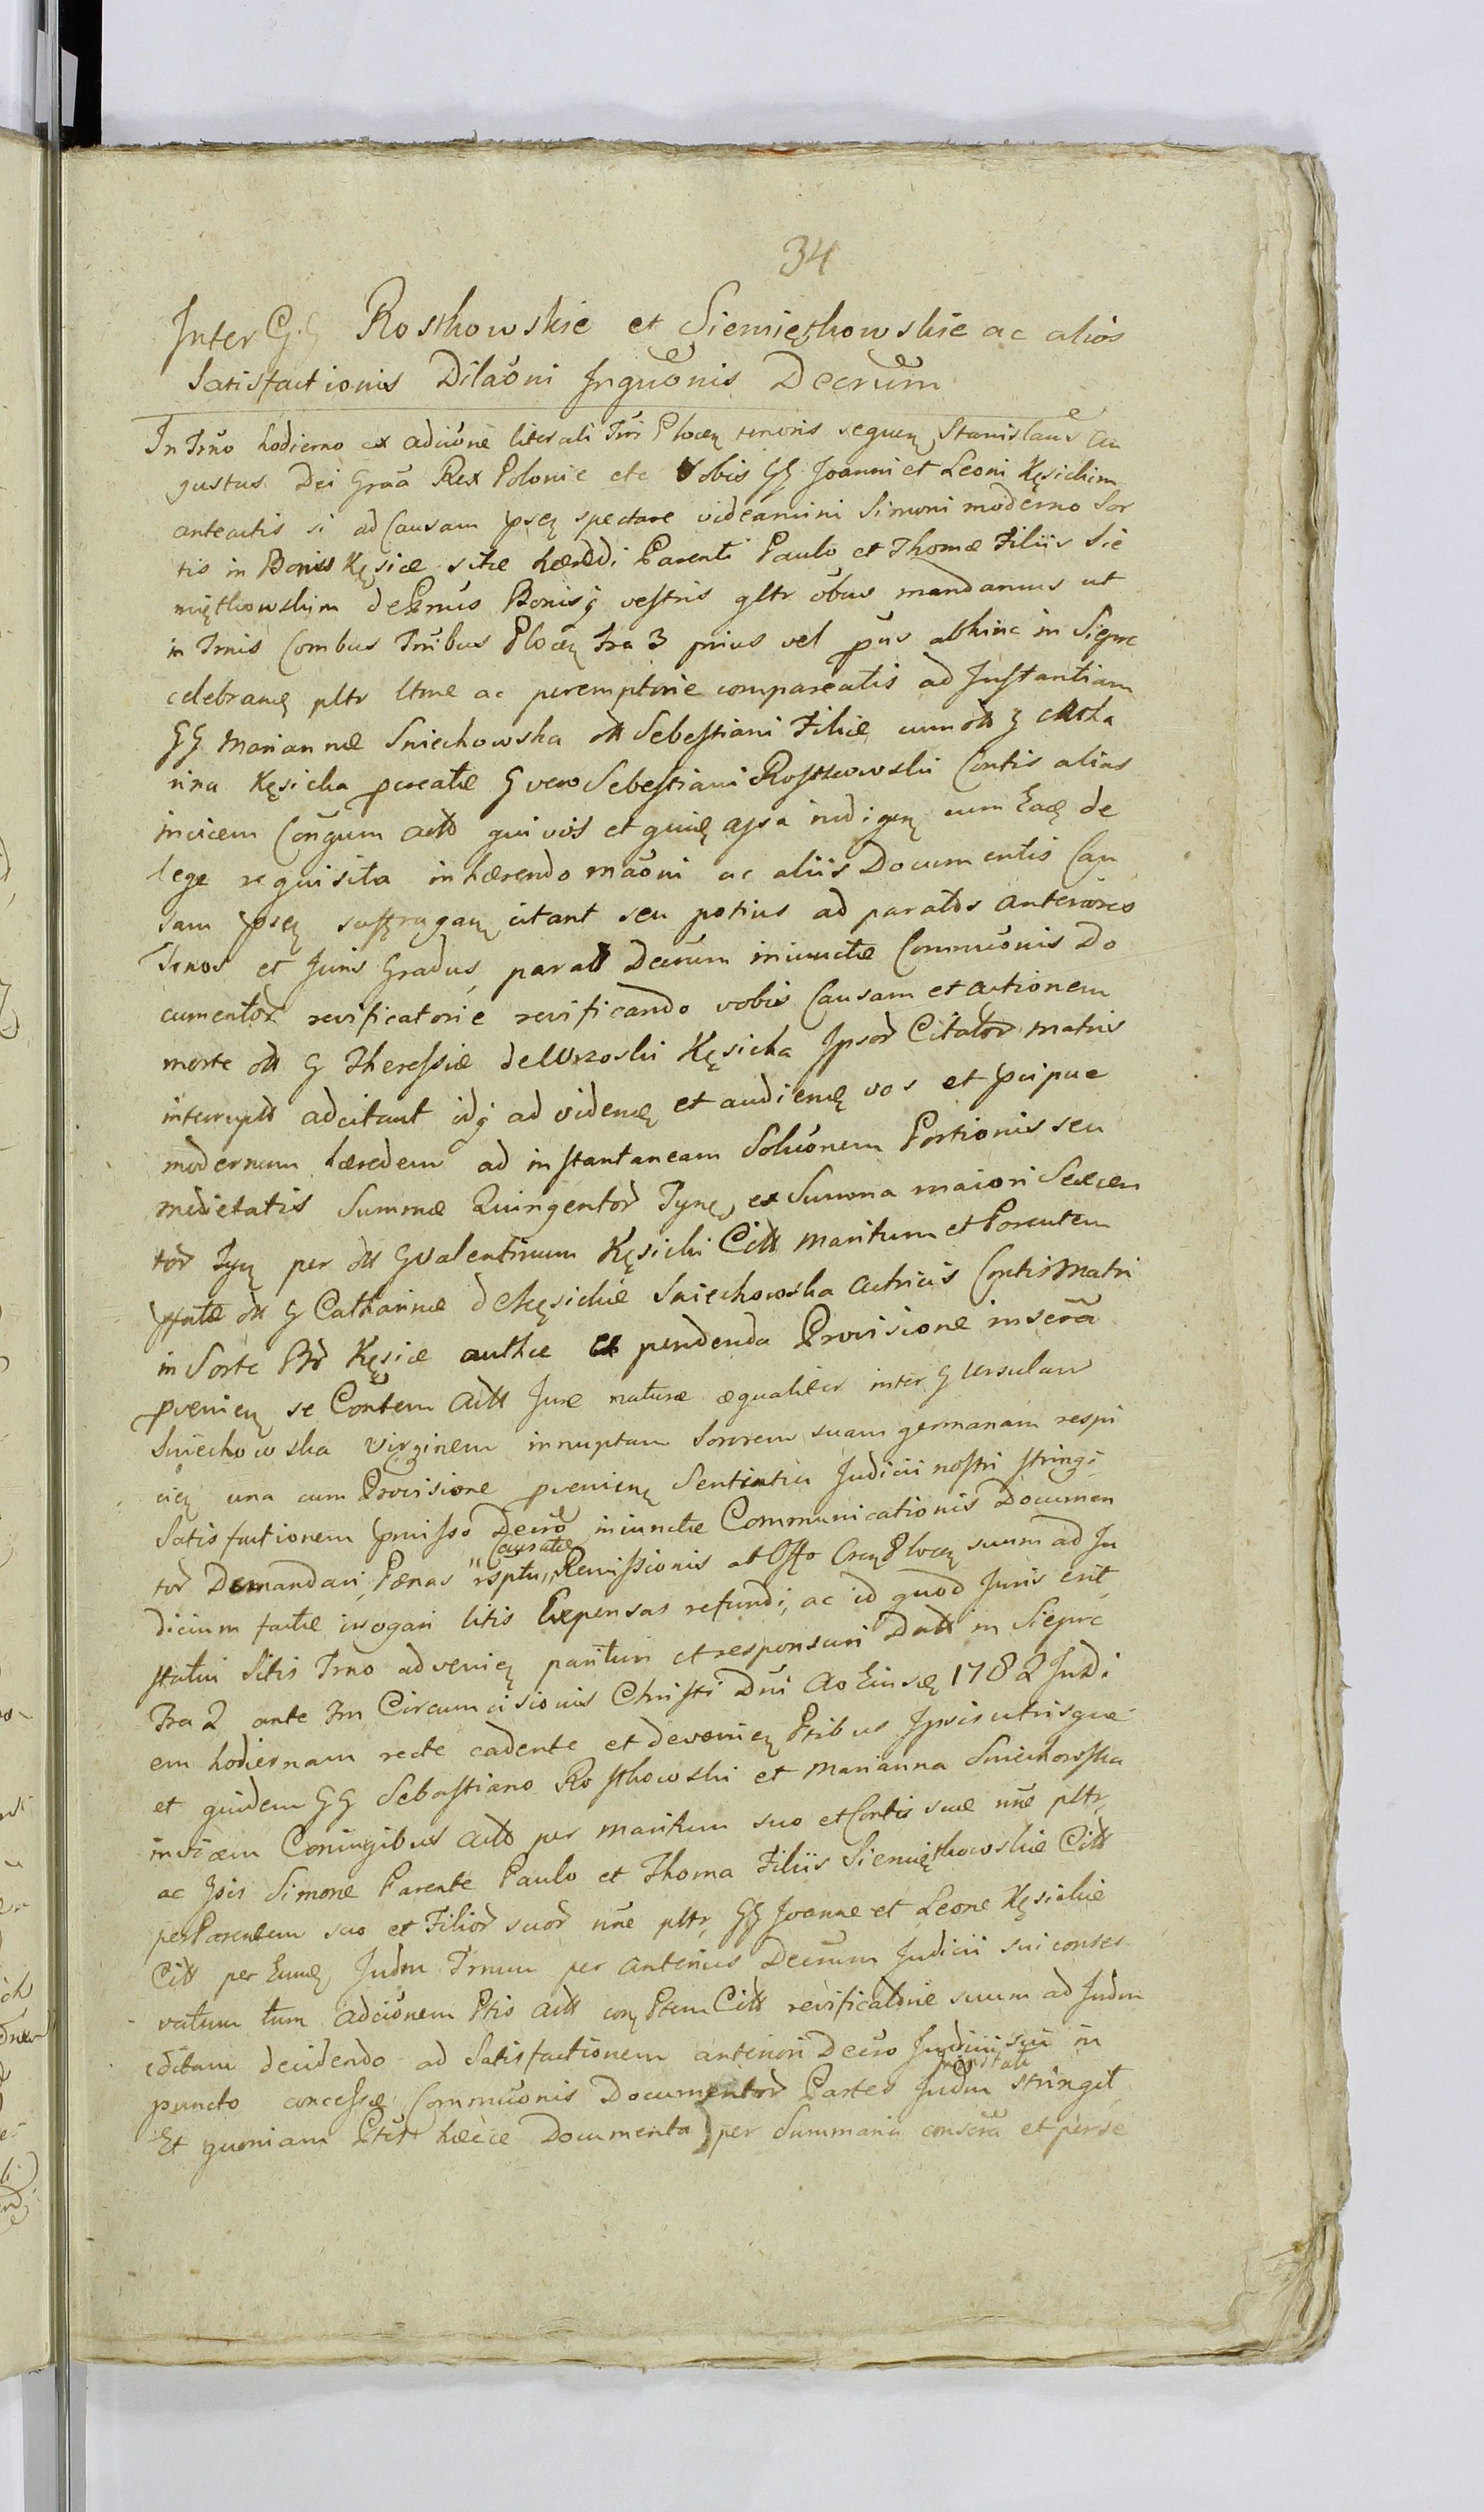 34
Inter GG Rosthowskie et Siemięthowskie ac alios
Satisfactionis Dilaōni Inquōnis Decrūm
In Trno hodierno ex adciōne literali Trri Plocen tenoris sequen Stanislaūs Au
gustus Dei Graā Rex Polonie etc Vobis GG Joanni et Leoni Kęsickim
anteactis si ad Causam pseñ spectare videamini Simoni moderno Sor
tis in Bonis Kęsice sitæ hæredi Parenti Paulo et Thomæ Filiis Sie
mięthowskim de Prnis Bonisq vestris gltr ōbus mandamus ut
in Trnis Combus Tribus Plocen fra 3 prius vel pūs abhinc in Sieprc
celebrand pltr ltme ac peremptorie compareatis ad Instantiam
GG Mariannæ Sniechowska olt Sebestiani Filiæ cum olt G Catha
rina Kęsicka pcreatæ G vero Sebestiani Rosthowski Contis alias
invicem Conjgum actt qui vos et quilt apsa indigen cum Eād de
lege requisita inhærendo māoni ac aliis Documentis Cau
sam pseñ suffragan citant seu potius ad paratos anteriores
Trnos et Juris Gradus, paratt Decrūm iniunctæ Commūonis Do
cumentor reificatorie reificando vobis Causam et actionem
morte olt G Theressiæ de Wrzoski Kęsicka Ipsor Citator matris
interruptt adcitant idq ad videnđ et audienđ vos et pcipue
modernum hæredem ad instantaneam Soluōnem Portionis seu
medietatis Summæ Quingentor Tyn, ex Summa maiori Sexcen
tor Tyn per olt G Valentinum Kęsicki Citt Maritum et Parentem
pfatæ olt G Catharinæ de Kęsickie Sniechowska Actricis Contis Matri
in Sorte Br Kęsice authæ et pendenda Provisione inserā
pvenien se Contem Actt Jure naturæ æqualiter inter G Ursulam
Sniechowska Virginem innuptam Sororem suam germanam respi
cien una cum Provisione pvenien Sententia Judicii nostri stringi
Satisfactionem pmisso Decrō iniunctæ Communicationis Documen
tor Demandari, Pænas causatæ rsptu Remissionis ab Offo Cren Plocen suum ad Ju
dicium factæ irrogari litis Expensas refundi, ac id quod Juris erit
statui Sitis Trno advenien parituri et responsuri Datt in Sieprc
Fra 2 ante Fm Circumcisionis Christi Dni Ao Eiusd 1782 In Di
em hodiernam recte cadente et devenien Ptibus Ipsis utrisque
et quidem GG Sebastiano Rosthowski et Marianna Sniechowska
invicem Coniugibus Actt per maritum suo et Contis suæ nne pltr,
ac Ipsis Simone Parente Paulo et Thoma Filiis Siemięthowskie Citt
per Parentem suo et Filior suor nne pltr, GG Joanne et Leone Kęsickie
Citt per Eund Judm Trnum per anterius Decrūm Judicii sui conser
vatum tum adciōnem Ptis Actt con Ptem Citt reificatorie suum ad Judm
editam decidendo ad Satisfactionem anteriori Decrō Judicii sui in
puncto concessæ Commūonis Documentor Partes Judm instan stringit
Et quoniam Ptes hæcce Documenta per Summaria conserā et per se